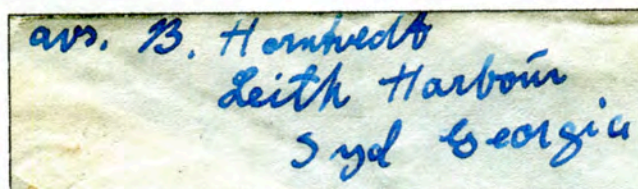 avs. B. Horntvedt
Leith Harbour
Syd Georgia